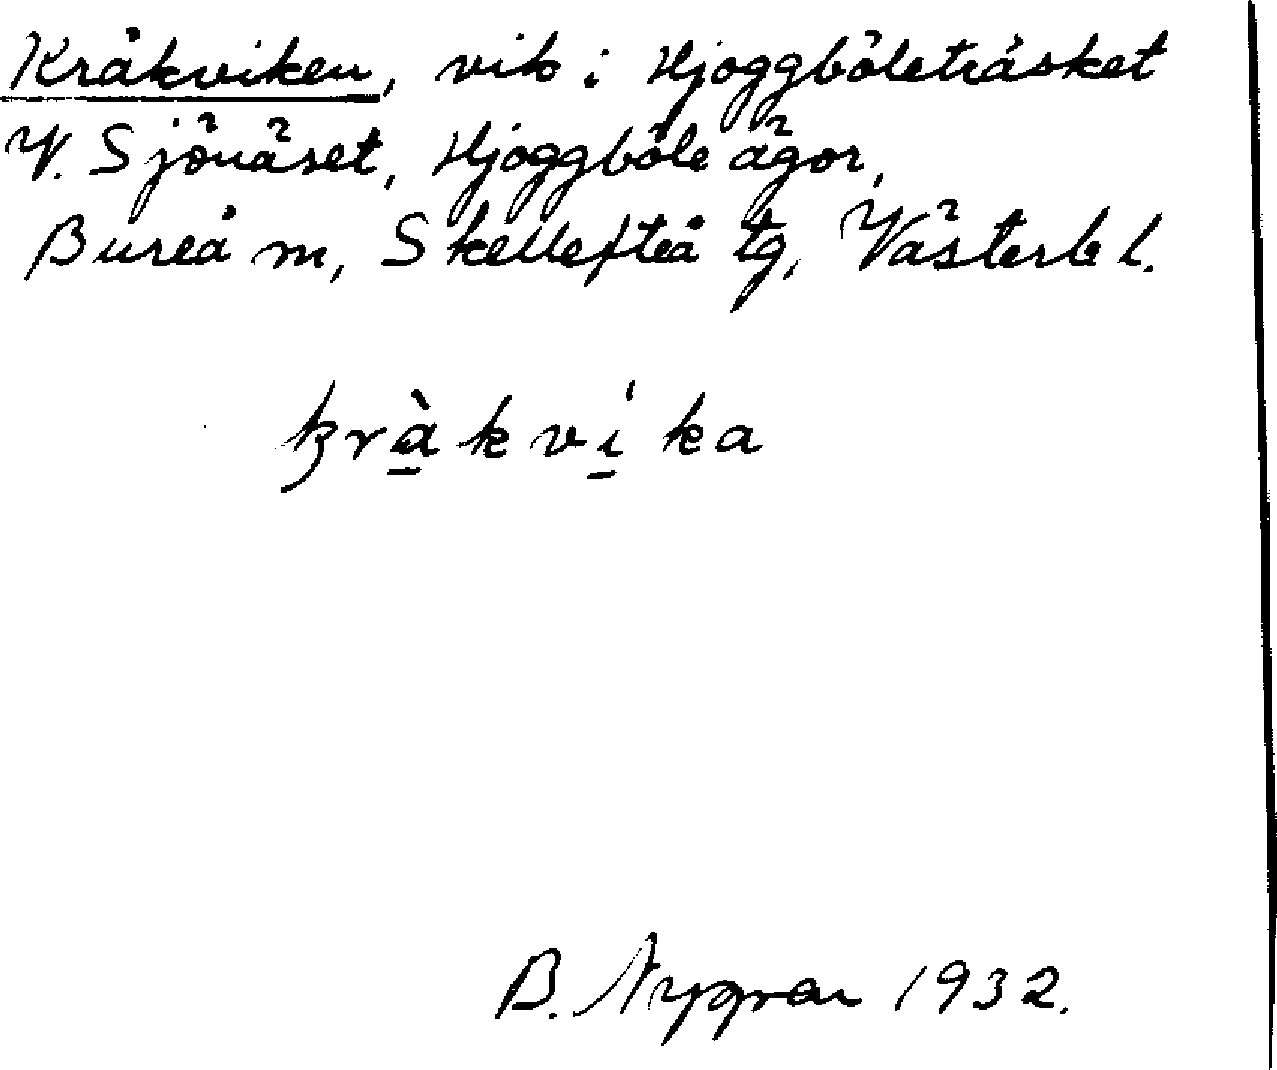 Kråkviken, vik i Hjoggböleträsket
V. Sjönäset, Hjoggböle ägor,
Bureå m, Skellefteå tg, Västerb l.
krà̱kví̱ka
B. Nygren 1932.